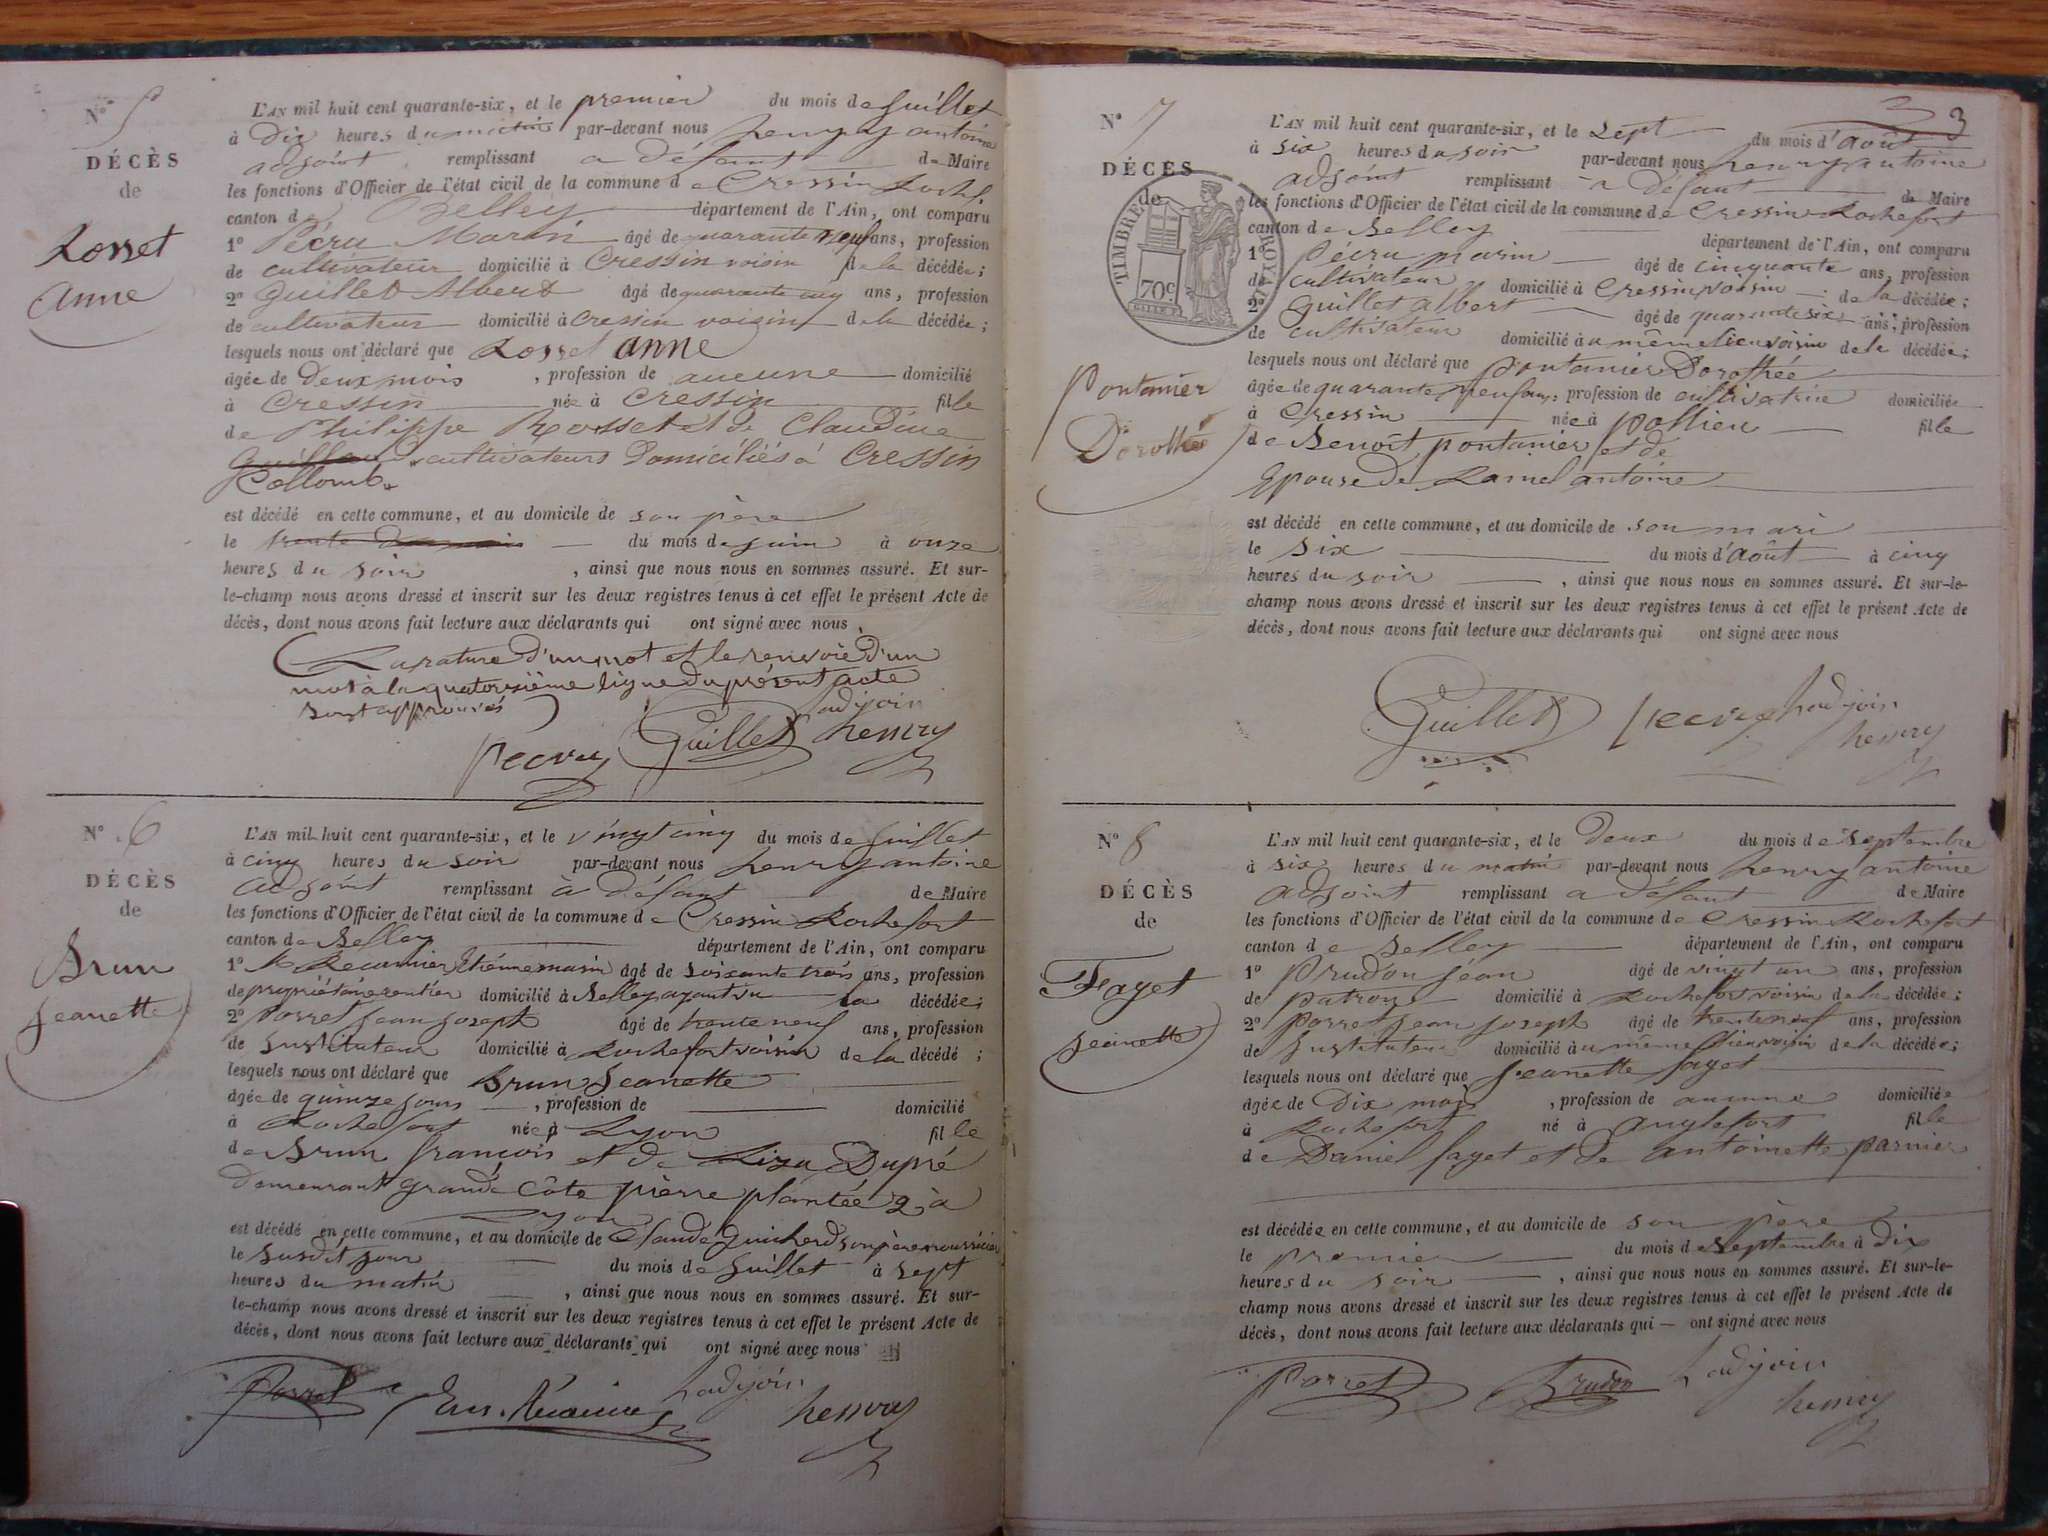 N° 5
DÉCÈS
de
Rosset
Anne
L'AN mil huit cent quarante-six, et le premier du mois de Juillet
à dix heures du matin par-devant nous henry antoine
adjoint remplissant a défaut de Maire
les fonctions d'Officier de l'état civil de la commune de Cressin Rochef.
canton de Belley département de l'Ain, ont comparu
1° Pécru Marin âgé de quarante neuf ans, profession
de cultivateur domicilié à Cressin voisin de la décédée;
2° Guillet Albert âgé de quarante cinq ans, profession
de cultivateur domicilié à cressin voisin de la décédée;
lesquels nous ont déclaré que Rosset anne
âgée de deux mois, profession de aucune domicilié
à Cressin née à Cressin fille
de Philippe Rosset et de Claudine
cultivateurs domiciliés à Cressin
Collomb
est décédé en cette commune, et au domicile de son père
le trente du mois de juin à onze
heures du soir, ainsi que nous nous en sommes assuré. Et sur-
le-champ nous avons dressé et inscrit sur les deux registres tenus à cet effet le présent Acte de
décès, dont nous avons fait lecture aux déclarants qui ont signé avec nous.
La rature d'un mot et le renvoie d'un
mot à la quatorsième ligne du présent acte
sont approuvés
l'adjoin
Pecru Guillet henry
N° 6
DÉCÈS
de
Brun
Jeanette
L'AN mil huit cent quarante-six, et le vingt cinq du mois de Juillet
à cinq heures du soir par-devant nous henry antoine
adjoint remplissant à défaut de Maire
les fonctions d'Officier de l'état civil de la commune de Cressin Rochefort
canton de Belley département de l'Ain, ont comparu
1° Récamier Etiénne marin âgé de soixante trois ans, profession
de propriétaire rentier domicilié à Belley ayant vu la décédée;
2° Porret jean joseph âgé de trente neuf ans, profession
de Instituteur domicilié à Rochefort voisin de la décédé;
lesquels nous ont déclaré que Brun Jeanette
âgée de quinze jours, profession de domicilié
à Rochefort née à Lyon fille
de Brun françois et de Liza Dupré
demeurant grande côte pierre plantée 2 à
Lyon
est décédé en cette commune, et au domicile de Claude Guicherd son père nourricier
le susdit jour du mois de Juillet à sept
heures du matin, ainsi que nous nous en sommes assuré. Et sur-
le-champ nous avons dressé et inscrit sur les deux registres tenus à cet effet le présent Acte de
décès, dont nous avons fait lecture aux déclarants qui ont signé avec nous
Porret l'adjoin
henry
3
N° 7
DÉCÈS
de
TIMBRE ROYAL
70c
Pontanier
Dorothée
L'AN mil huit cent quarante-six, et le sept du mois d'août
à six heures du soir par-devant nous henry antoine
adjoint remplissant a défaut de Maire
les fonctions d'Officier de l'état civil de la commune de Cressin-Rochefort
canton de Belley département de l'Ain, ont comparu
1° Pécru marin âgé de cinquante ans, profession
de cultivateur domicilié à Cressin voisin de la décédée;
2° Guillet albert âgé de quarante six ans, profession
de cultivateur domicilié à u même lieu voisin de la décédée;
lesquels nous ont déclaré que Pontanier Dorothée
âgée de quarante neuf ans, profession de cultivatrice domiciliée
à Cressin née à Pollieu fille
de Benoît pontanier et de
Epouse de Ramel antoine
est décédé en cette commune, et au domicile de son mari
le six du mois d'août à cinq
heures du soir, ainsi que nous nous en sommes assuré. Et sur-le-
champ nous avons dressé et inscrit sur les deux registres tenus à cet effet le présent Acte de
décès, dont nous avons fait lecture aux déclarants qui ont signé avec nous
Guillet Pecru l'adjoin
henry
N° 8
DÉCÈS
de
Fayet
Jeanette
L'AN mil huit cent quarante-six, et le deux du mois de septembre
à six heures du matin par-devant nous henry antoine
adjoint remplissant a défaut de Maire
les fonctions d'Officier de l'état civil de la commune de Cressin Rochefort
canton de Belley département de l'Ain, ont comparu
1° Prudon Jean âgé de vingt un ans, profession
de patron domicilié à Rochefort voisin de la décédée;
2° Porret Jean Joseph âgé de trente neuf ans, profession
de Instituteur domicilié à u même lieu voisin de la décédée;
lesquels nous ont déclaré que Jeanette fayet
âgée de dix mois, profession de aucune domiciliée
à Rochefort né à anglefort fille
de Daniel fayet et de antoinette parnier
est décédée en cette commune, et au domicile de son père
le premier du mois de septembre à dix
heures du soir, ainsi que nous nous en sommes assuré. Et sur-le-
champ nous avons dressé et inscrit sur les deux registres tenus à cet effet le présent Acte de
décès, dont nous avons fait lecture aux déclarants qui — ont signé avec nous
Porret Prudon l'adjoin
henry